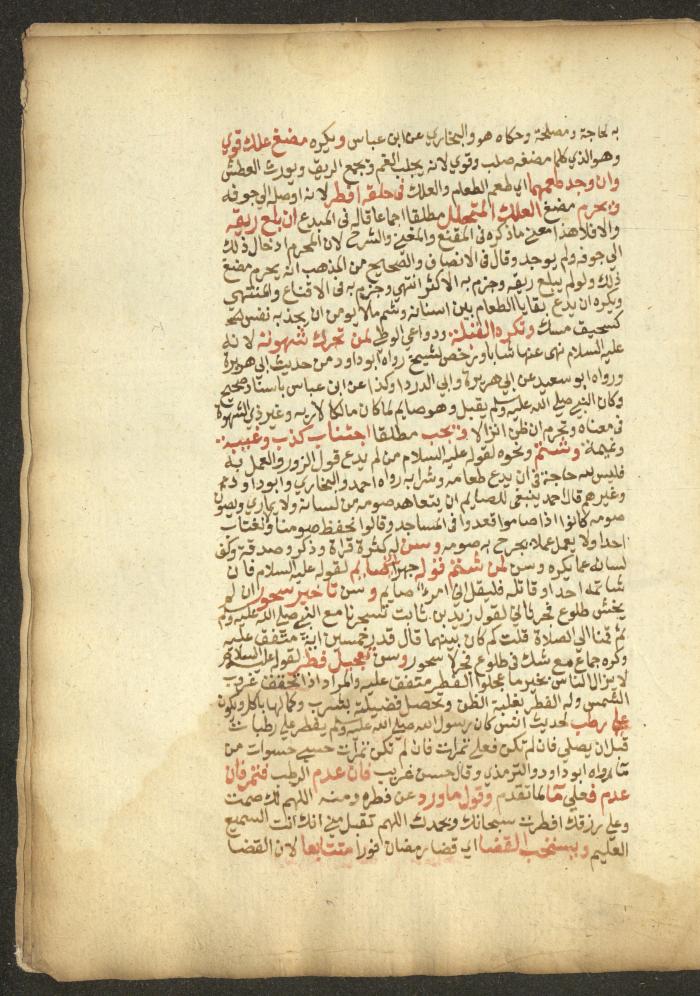 به لحاجة ومصلحة وحكاه هو والبخاري عن ابن عباس ويكره مضغ علك قوي
وهو الذي كلما مضغه صلب وقوي لانه يجلب الغم ويجمع الريق ويورث العطش
وان وجد طعمهما اي طعم الطعام والعلك في حلقه افطر لانه اوصله الي جوفه
ويحرم مضغ العلك المتحلل مطلقا اجماعا قاله في المبدع ان بلع ريقه
والا فلا هذا معني ما ذكره في المقنع والمغني والشرح لان المحرم ادخال ذلك
الي جوفه ولم يوجد وقال في الانصاف والصحيح من المذهب انه يحرم مضغ
ذلك ولو لم يبلع ريقه وجزم به الاكثر انتهي وجزم به في الاقناع والمنتهي
ويكره ان يدع بقايا الطعام بين اسنانه وشم ما لا يومن ان يجذبه نفس كـ
كسحيق مسك وتكره القبلة ودواعي الوطي لمن تحرك شهوته لانه
عليه السلام نهي عنها شابا ورخص لشيخ رواه ابو داود من حديث ابي هريرة
ورواه ابو سعيد عن ابي هريرة وابي الدرداء وكذا عن ابن عباس باسناد صحيح
وكان النبي صلي الله عليه وسلم يقبل وهو صايم لما كان مالكا لاربه وغير ذي الشهوة
في معناه وتحرم ان ظن انزالا ويجب مطلقا اجتناب كذب وغيبة
ونميمة وشتم ونحوه لقوله عليه السلام من لم يدع قول الزور والعمل به
فليس لله حاجة في ان يدع طعامه وشرابه رواه احمد والبخاري وابو داود
وغيرهم قال احمد ينبغي للصايم ان يتعاهد صومه من لسانه ولا يماري ويصون
صومه كانوا اذا صاموا قعدوا في المساجد وقالوا نحفظ صومنا ولا نغتاب
احدا ولا يعمل عملا يجرح به صومه وسن له كثرة قراة وذكر وصدقة وكف
لسانه عما يكره وسن لمن شتم قوله جهرا اني صايم لقوله عليه السلام فان
شاتمه احد او قاتله فليقل اني امرء صايم وسن تاخير سحور ان لم
يخش طلوع فجر ثاني لقول زيد بن ثابت تسحرنا مع النبي صلي الله عليه وسلم
ثم قمنا الي الصلاة قلت كم كان بينهما قال قدر خمسين اية متفق عليه
وكره جماع مع شك في طلوع فجر لا سحور وسن تعجيل فطر لقوله عليه السلام
لا يزال الناس بخير ما عجلوا الفطر متفق عليه والمراد اذا تحقق غروب
الشمس وله الفطر بغلبة الظن وتحصل فضيلته بشرب وكمالها باكل ويكون
علي رطب لحديث انس كان رسول الله صلي الله عليه وسلم يفطر علي رطبات
قبل ان يصلي فان لم تكن فعلي تمرات فان لم تكن تمرات حسي حسوات من
ماء رواه ابو داود والترمذي وقال حسن غريب فان عدم الرطب فتمر فان
عدم فعلي ماء لما تقدم وقول ما ورد عن فطره ومنه اللهم لك صمت
وعلي رزقك افطرت سبحانك وبحمدك اللهم تقبل مني انك انت السميع
العليم ويستحب القضاء اي قضا رمضان افورا متتابعا لان القضا